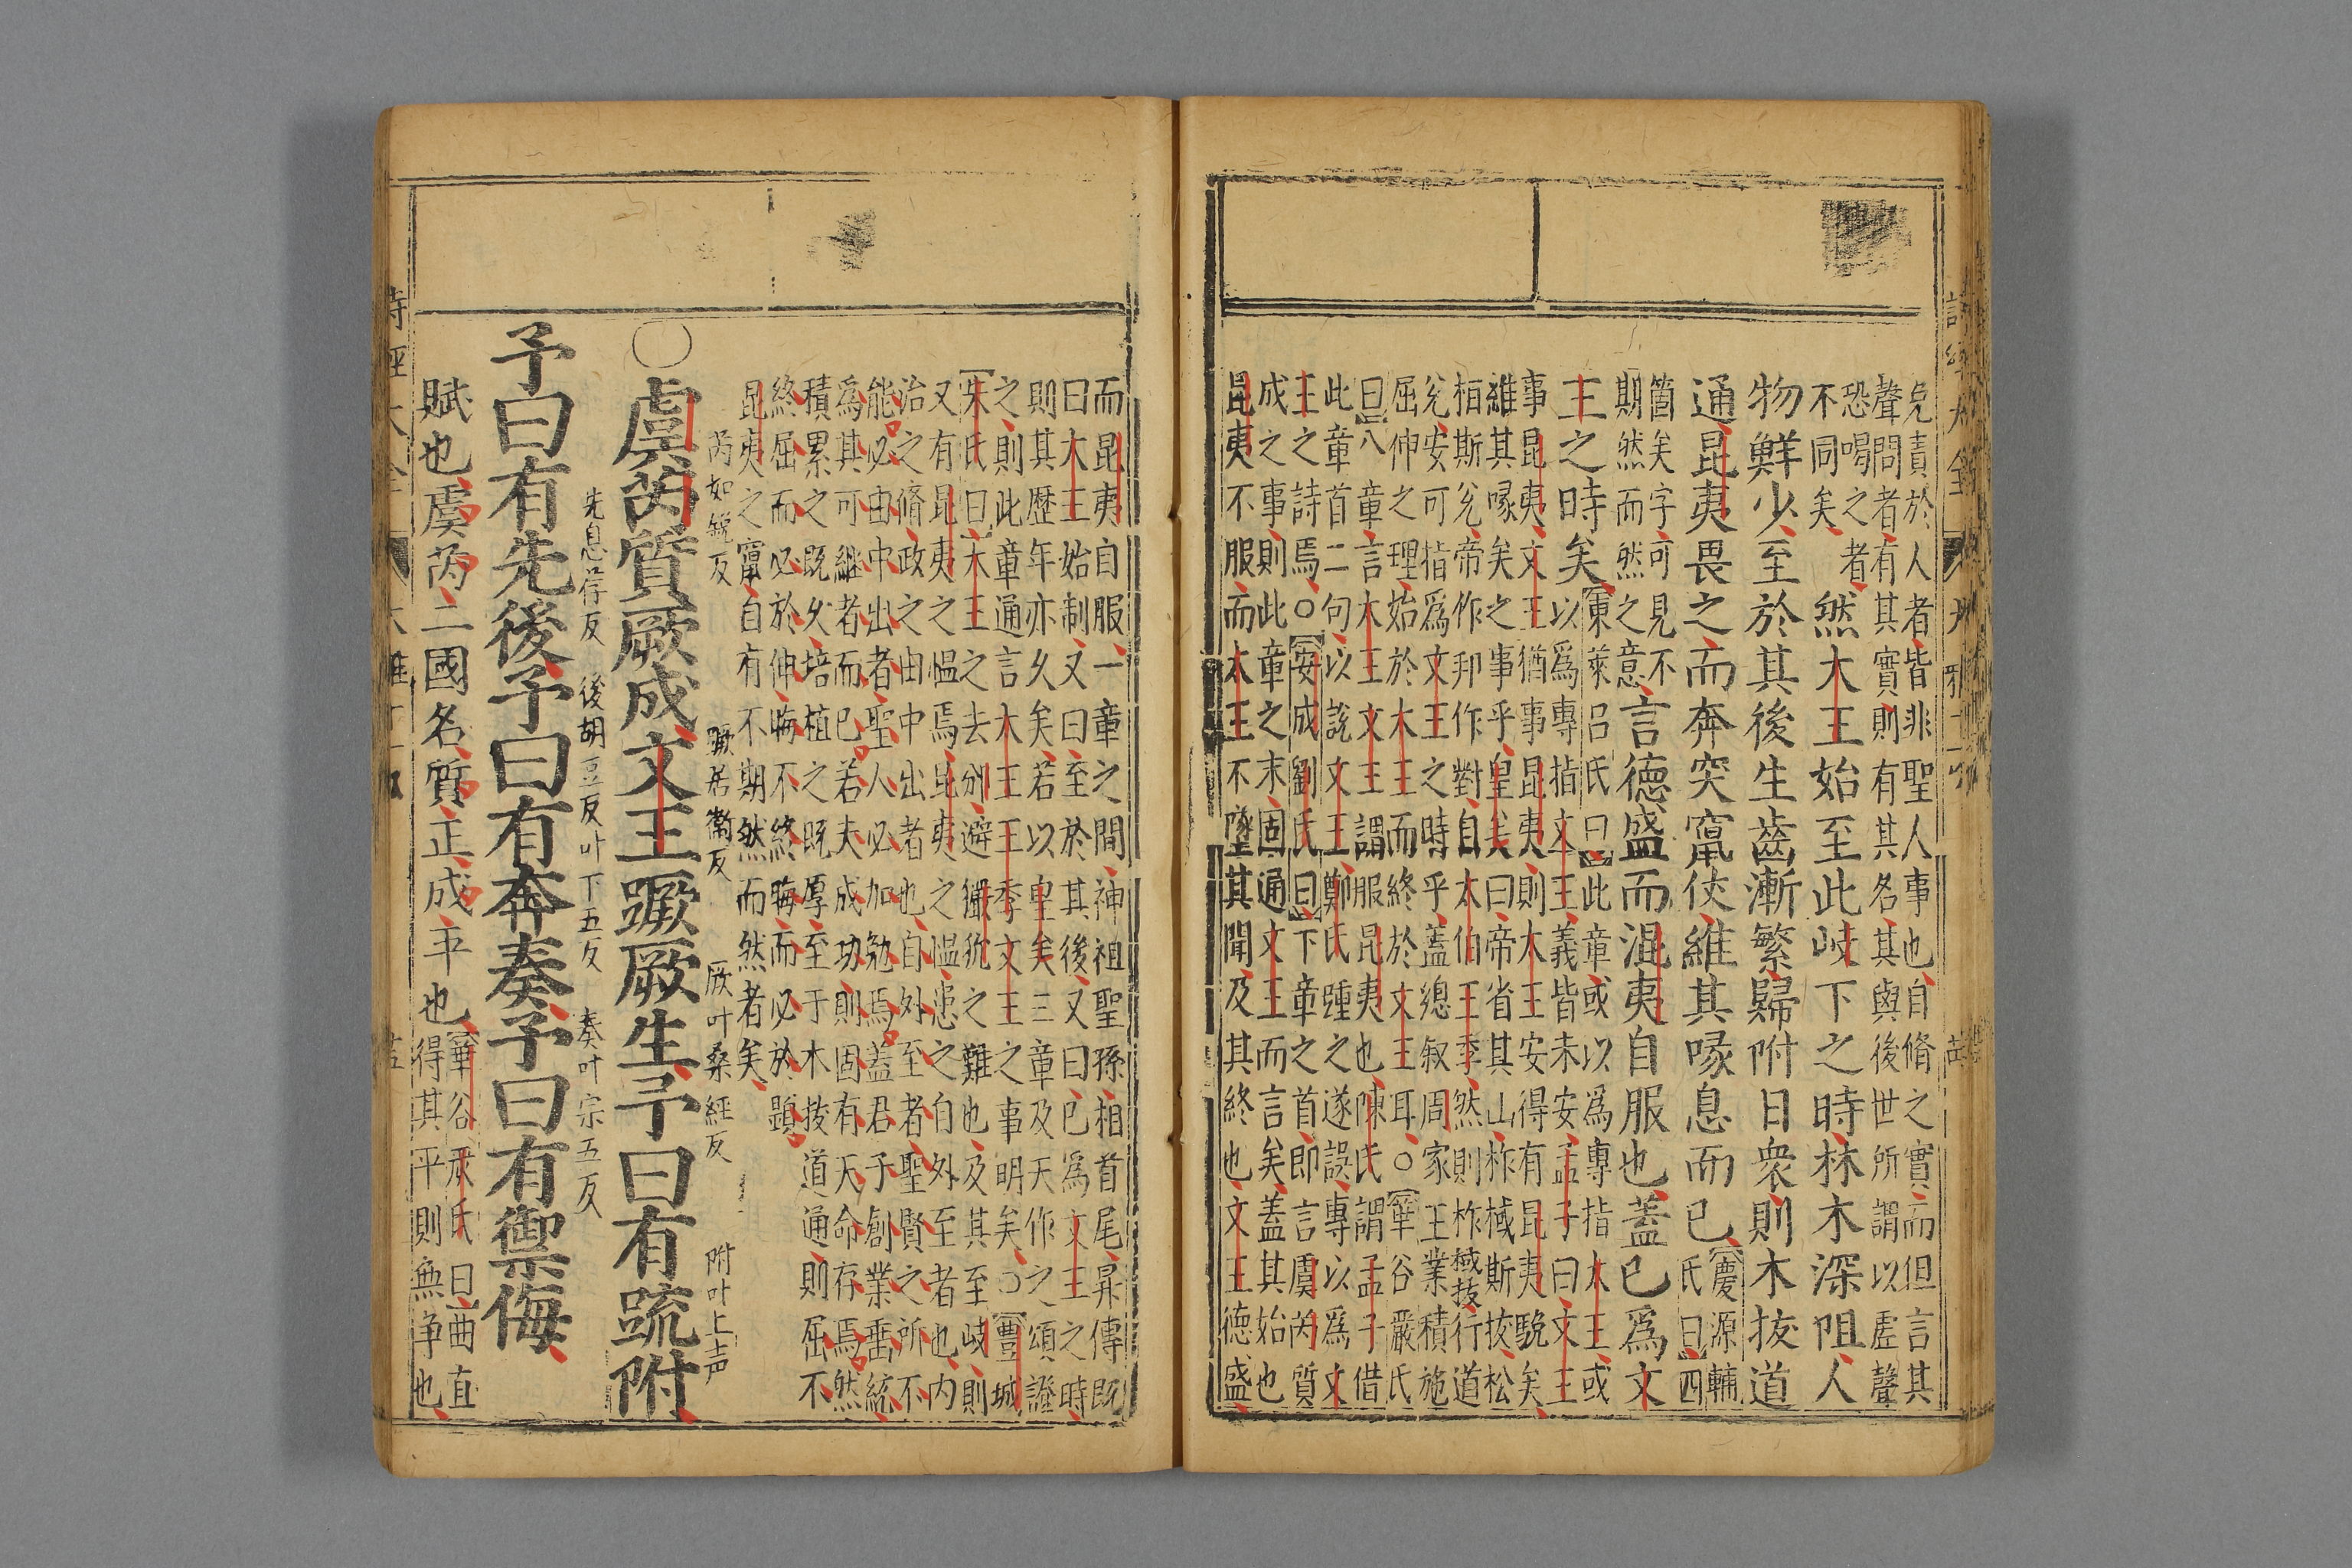 免責於人者皆非聖人事也自脩之實而但言其
聲問者有其實則有其名其與後世所謂以虛聲
恐喝之者
不同矣
然大王始至此岐下之時林木深阻人
物鮮少至於其後生齒漸繁歸附日衆則木拔道
通昆夷畏之而奔突竄伏維其喙息而已
慶源輔
氏曰四
箇矣字可見不
期然而然之意
言德盛而混夷自服也蓋已爲文
王之時矣
東萊呂氏曰此章或以爲專指太王或
以爲專指文王義皆未安孟子曰文王
事昆夷文王猶事昆夷則大王安得有昆夷駾矣
維其喙矣之事乎皇矣曰帝省其山柞棫斯拔松
栢斯兊帝作邦作對自太伯王季然則柞棫拔行道
兊安可指爲文王之時乎蓋總叙周家王業積施
屈伸之理始於大王而終於文王耳○華谷嚴氏
曰八章言大王文王謂服昆夷也陳氏謂孟子借
此章首二句以說文王鄭氏踵之遂誤專以爲文
王之詩焉○安成劉氏曰下章之首即言虞芮質
成之事則此章之末固通文王而言矣蓋其始也
昆夷不服而太王不墜其聞及其終也文王德盛
而昆夷自服一章之間神祖聖孫相首尾昇傳既
曰大王始制又曰至於其後又曰已爲文王之時
則其歷年亦久矣若以皇矣三章及天作之頌證
之則此章通言大王王季文王之事明矣○豐城
朱氏曰大王之去邠避玁狁之難也及其至岐則
又有昆夷之愠焉昆夷之愠患之自外至者也内
治之脩政之由中出者也自外至者聖賢之所不
能必由中出者聖人必加勉焉蓋君子創業垂統
爲其可繼者而已若夫成功則固有天命存焉然
積累之既久培植之既厚至于木拔道通則屈不
終屈而必於伸晦不終晦而必於顯
昆夷之竄自有不期然而然者矣
芮如銳反
蹶居衛反
厥叶桑經反
附叶上声
○虞芮質厥成文王蹶厥生予曰有疏附
先息荐反
後胡豆反叶下五反
奏叶宗五反
予曰有先後予曰有奔奏予曰有禦侮
賦也虞芮二國名質正成平也
華谷嚴氏曰曲直
得其平則無争也